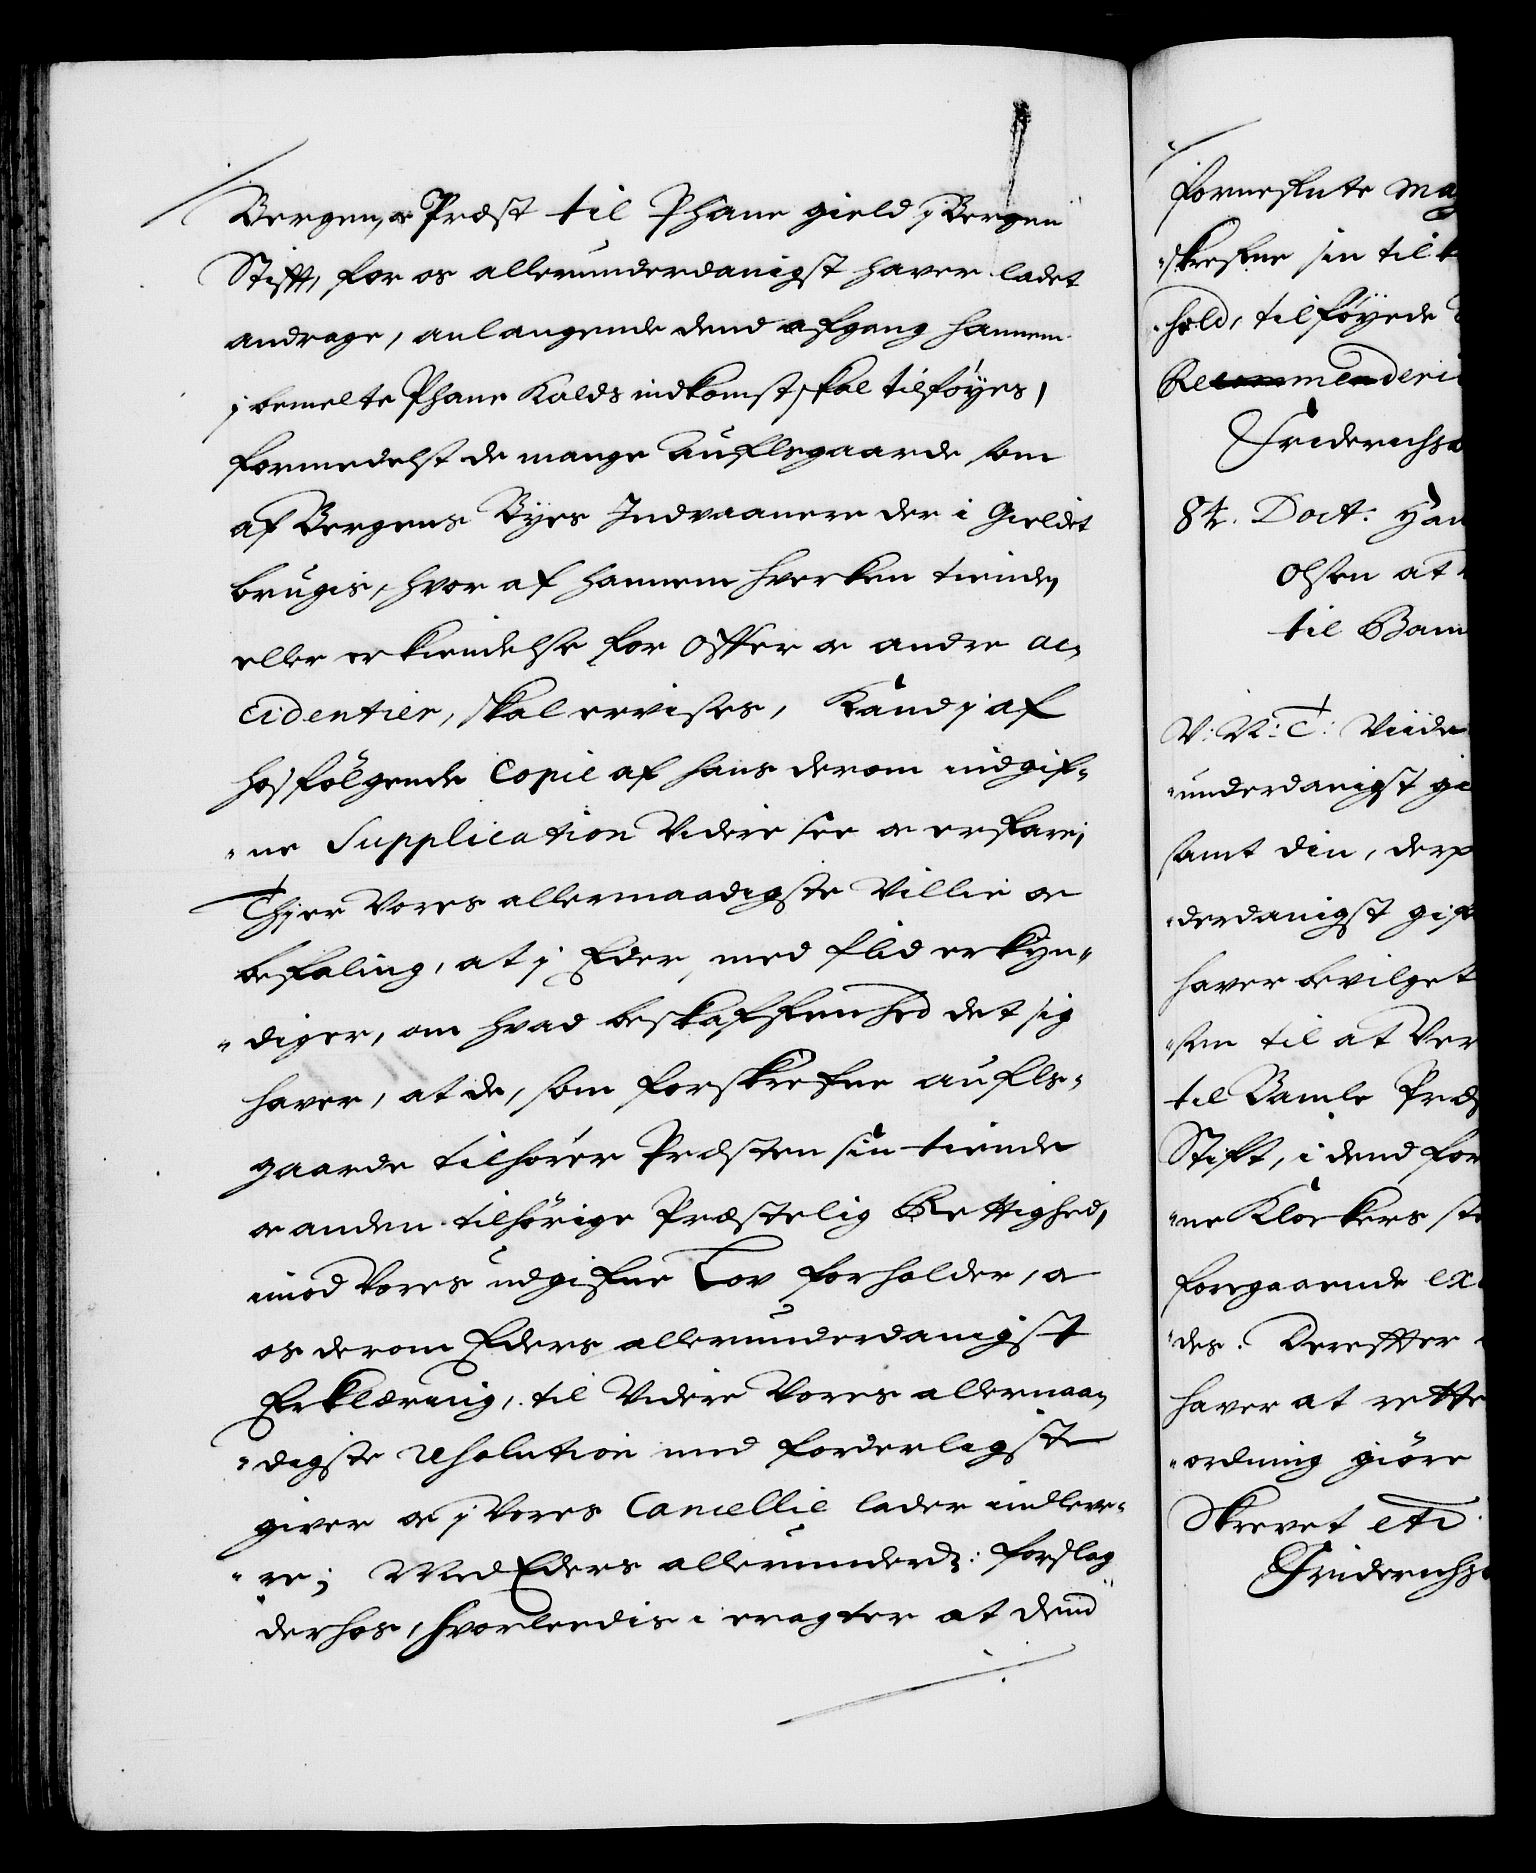 Bergen, oc Præst til Phane gield j Bergen
Stifft, for os allerunderdanigst haver ladet
andrage, anlangende dend afgang hannem
j bemelte Phane Kalds indkomst skal tilføyes,
formedelst de mange auflsgaarde som
af Bergens Byes Indvaanere der i Gieldet
brugis, hvor af hannem hverken tiende,
eller erkiendelse for Offer oc andre ac-
cidentier, skal ervises, Kand j af
hosfølgende Copie af hans derom indgif-
ne Supplication Videre see oc erfare;
Thj er Vores allernaadigste Villie oc
befaling, at j Eder med flid erkyn-
diger, om hvad beskaffenhed det sig
haver, at de, som forskrefne aufls-
gaarde tilhører Præsten sin tiende
oc anden tilhørige Præstelig Rettighed,
imod Vores udgifne Lov forholder, oc
os derom Eders allerunderdanigst
Erklæring, til Videre Vores allernaa-
digste resolution med forderligste
giver oc j Vores Cancellie lader indleve-
re; Med Eders allerunderd: forslag
derhos, hvorledis i eragter at dend
forneskute
skrefne sin til
hold, tilføyede
Recommenderi
Friderichs
84. Doct: Han
Olsen at
til Bam
V: R: T: Viide
underdanigst gi
samt din, der
derdanigst gif
haver bevilget
sen til at Ver
til Bamle Præs
Stift, i dend for
ne Klockers ste
foregaaende ex
des. Derefter
haver at rette
ordning giøre
Skrevet etc
Friderichs